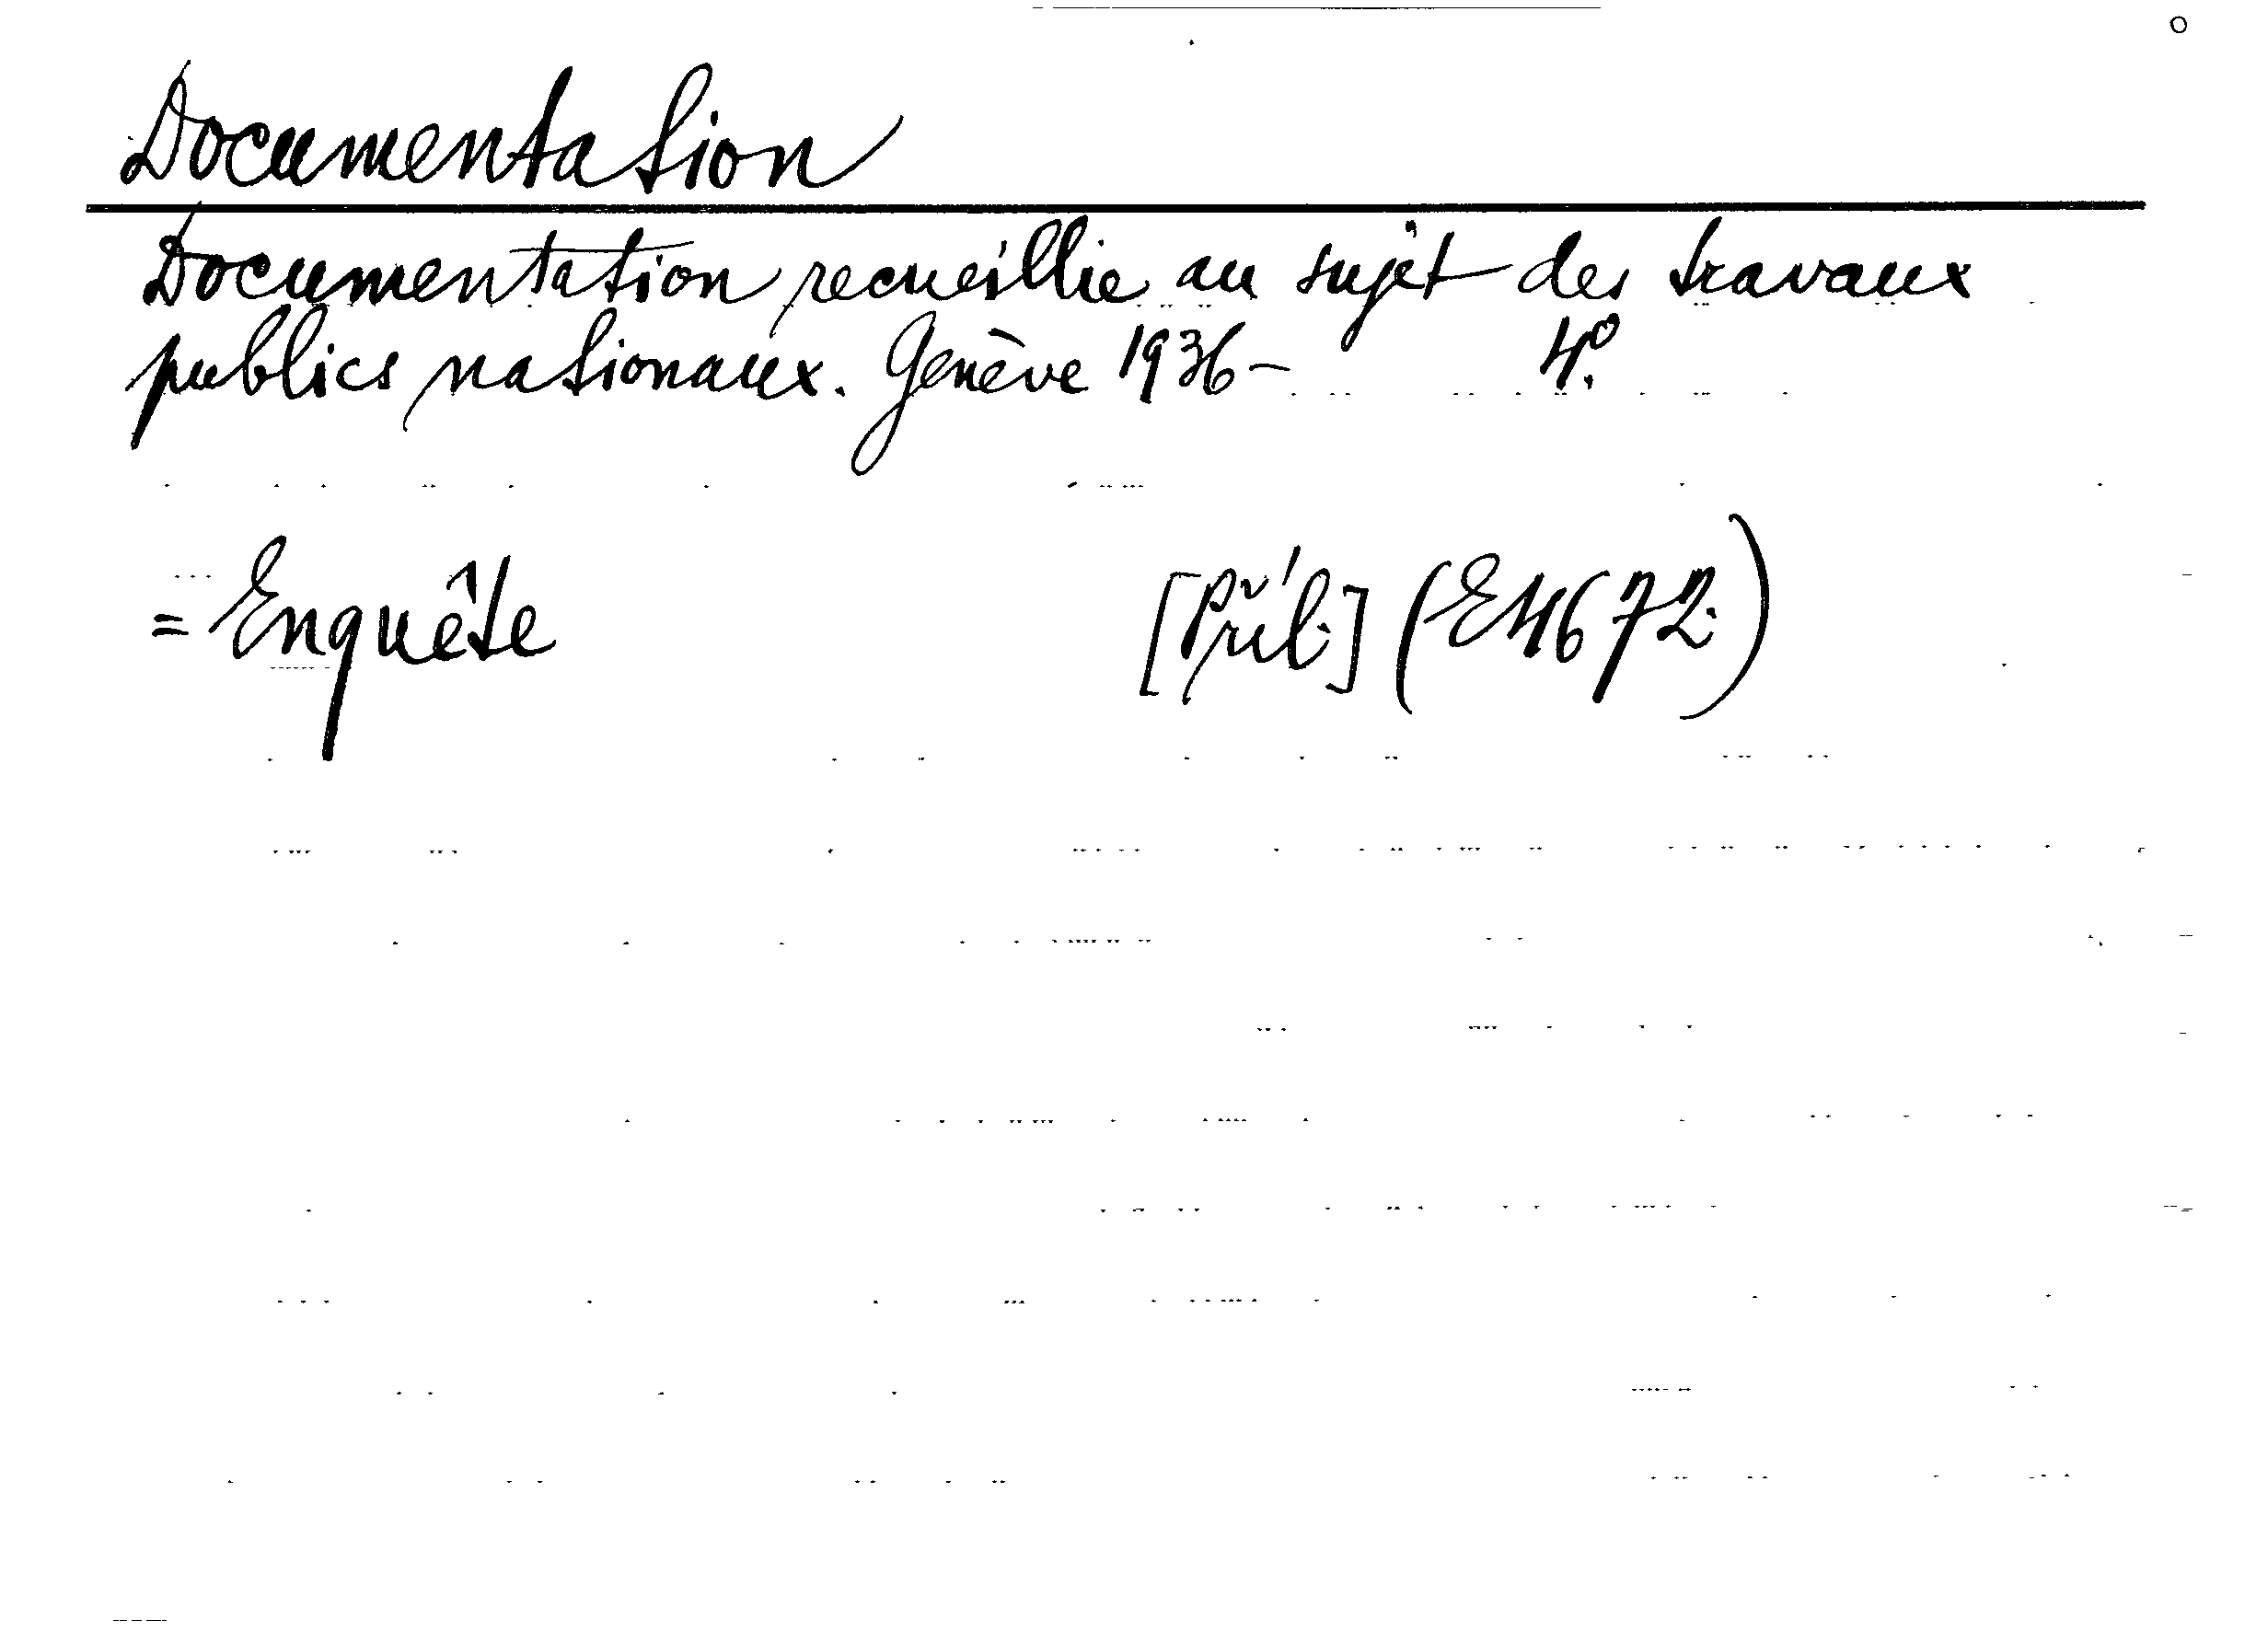 Documentation
Documentation recueillie au sujet des travaux
publics nationaux. Genève 1936- 4°.
= Enquête [Příl.] (E4672)